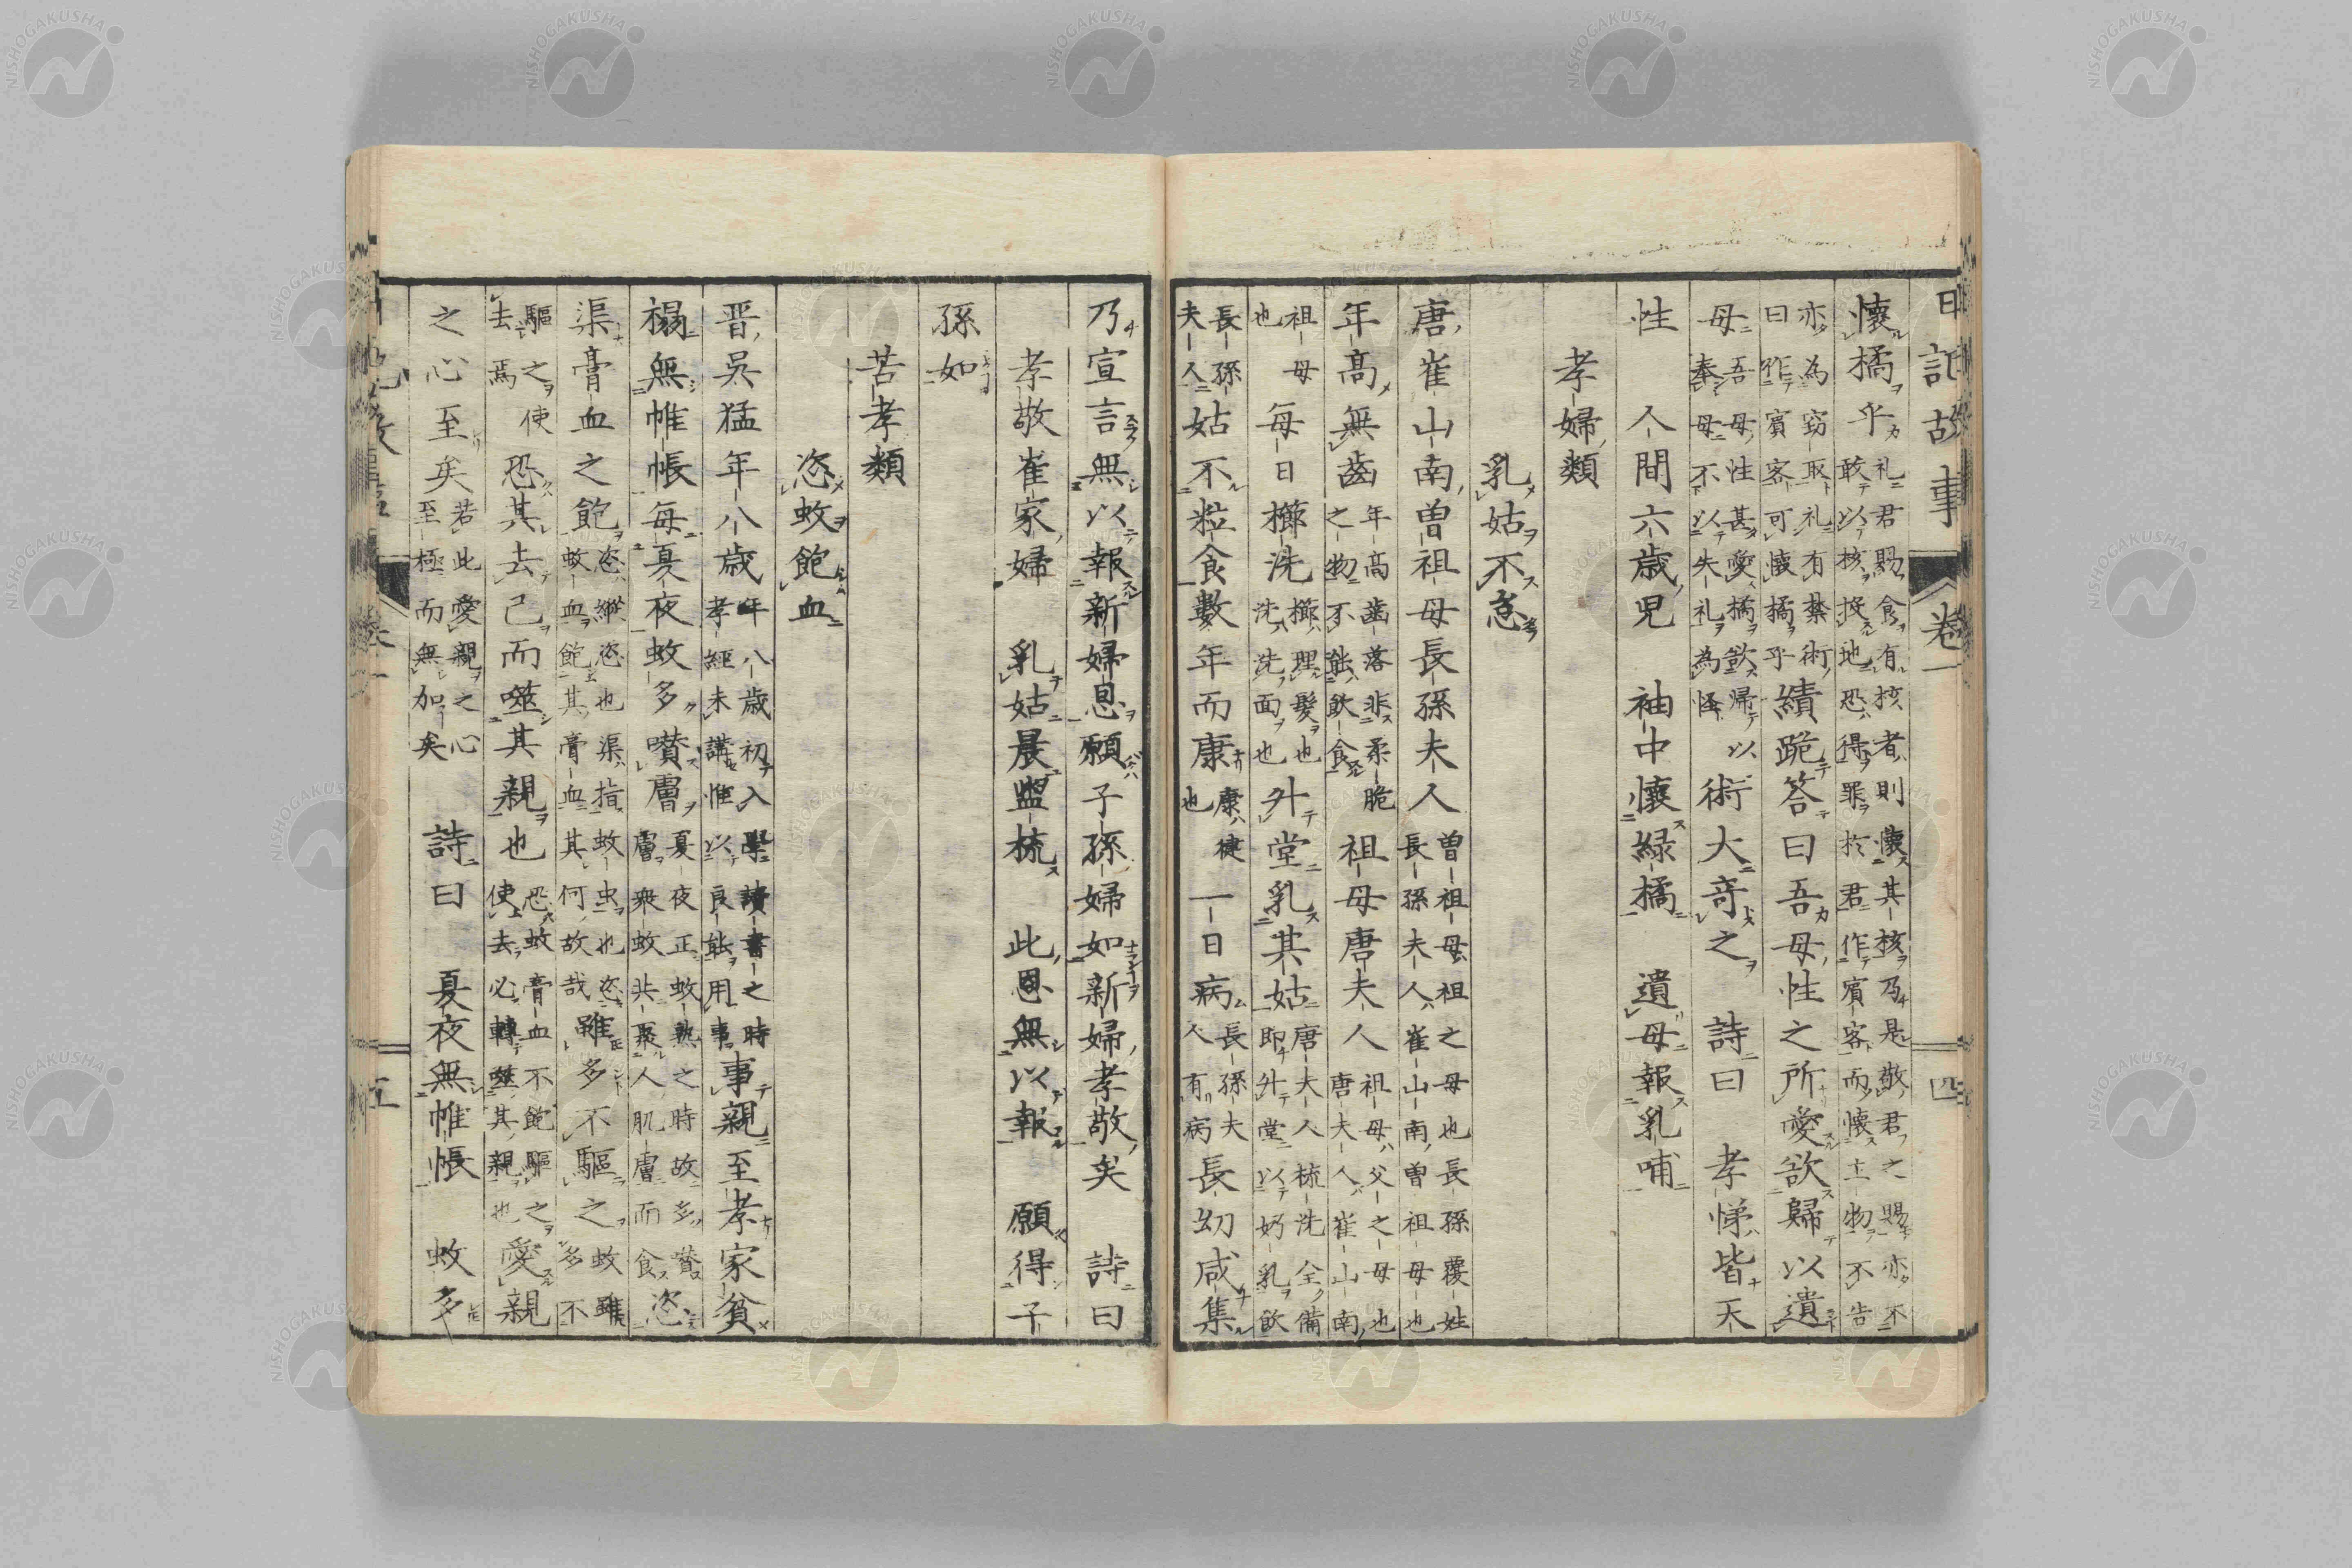 日記故事 卷一 四
懷橘乎礼君賜食有核者則懷其核乃是敬君之賜亦不敢以核投地恐得罪於君作賓客而懷土物不告
亦為窃取礼有禁術曰作賓客可懷橘乎績跪答曰吾母性之所愛欲歸以遺
母吾母性甚愛橘欲帰以奉母不以失礼為怪術大竒之 詩曰 孝悌皆天
性 人間六歳児 袖中懷緑橘 遺母報乳哺
孝婦類
乳姑不怠
唐崔山南曽祖母長孫夫人曽祖母祖之母也長孫覆姓長孫夫人崔山南曽祖母也
年髙無齒年髙齒落非柔脆之物不能飲食祖母唐夫人祖母父之母也唐夫人崔山南
祖母也毎日櫛洗櫛理髮也洗洗面也升堂乳其姑唐夫人梳洗全備即升堂以奶乳飲
長孫夫人姑不粒食數年而康康徤也一日病長孫夫人有病長幼咸集
乃宣言無以報新婦恩願子孫婦如新婦孝敬矣 詩曰
孝敬崔家婦 乳姑晨盥梳 此恩無以報 願得子
孫如
苦孝類
恣蚊飽血
晋吳猛年八歳年八歳初入學讀書之時孝經未講惟以良能用事事親至孝家貧
榻無帷帳毎夏夜蚊多噆膚夏夜正蚊熟之時故多噆膚衆蚊共聚人肌膚而食恣
渠膏血之飽恣縱恣也渠指蚊虫也恣蚊血飽其膏血其何故哉雖多不驅之蚊雖多不
驅之去焉使恐其去己而噬其親也恐蚊膏血不飽驅之使去必轉噬其親也愛親
之心至矣若此愛親之心至極而無加矣 詩曰 夏夜無帷帳 蚊多